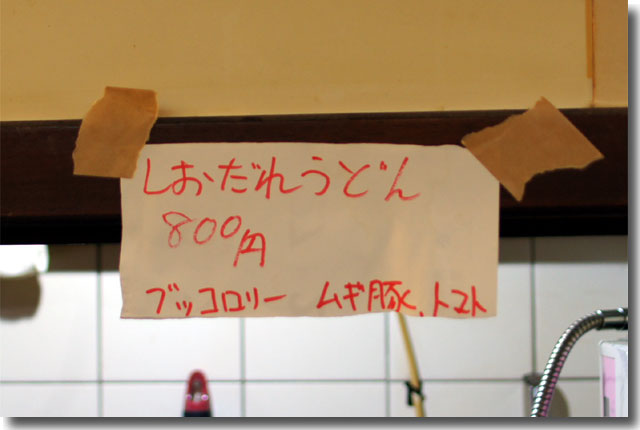 しおだれうどん
800円
ブッコロリー ムギ豚、トマト